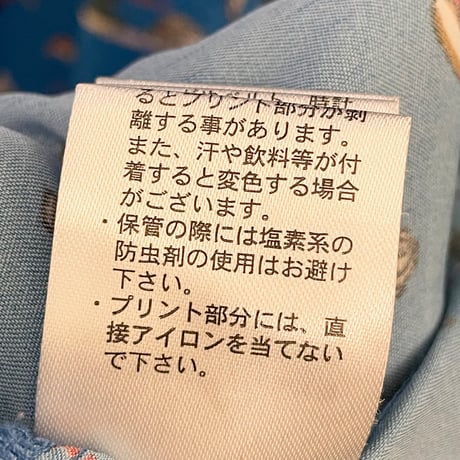 るとプリント部分が剥
離する事があります。
また、汗や飲料等が付
着すると変色する場合
がございます。
・保管の際には塩素系の
防虫剤の使用はお避け
下さい。
・プリント部分には、直
接アイロンを当てない
で下さい。